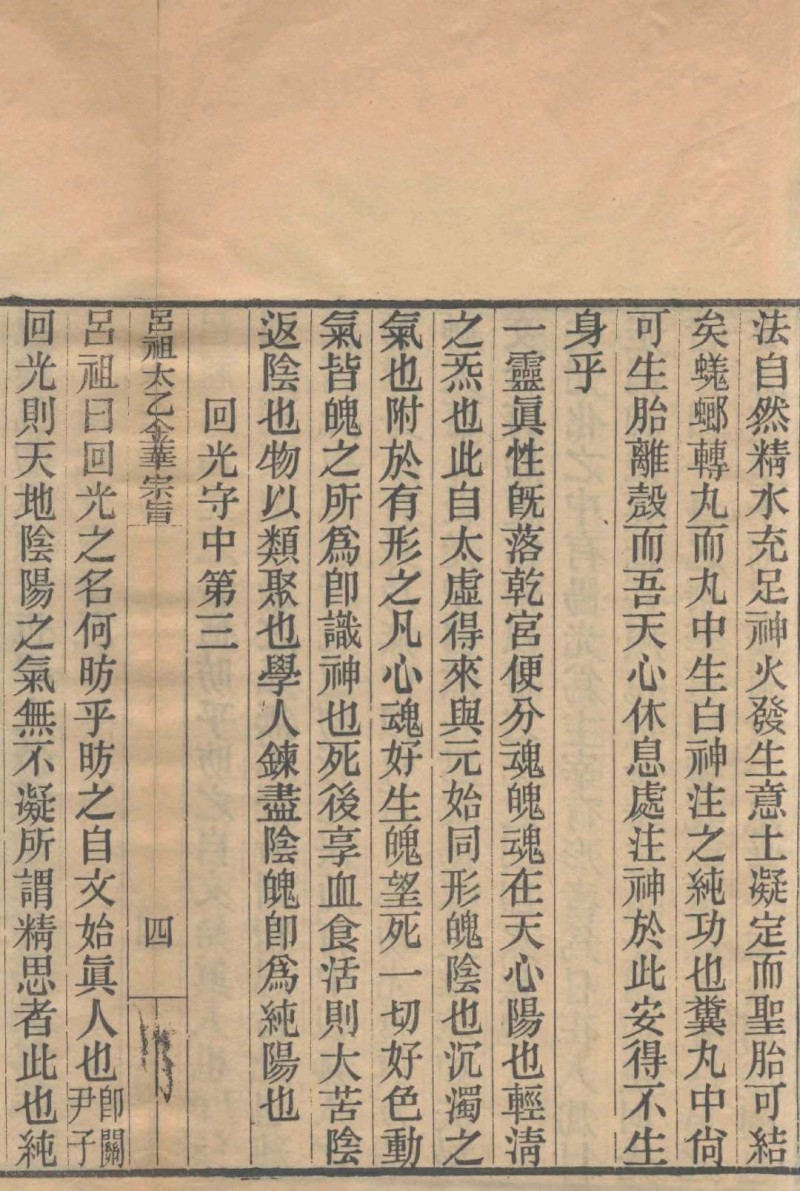 法自然精水充足神火發生意土凝定而聖胎可結
矣蜣螂轉丸而丸中生白神注之純功也糞丸中尙
可生胎離殼而吾天心休息處注神於此安得不生
身乎
一靈眞性旣落乾宮便分魂魄魂在天心陽也輕淸
之炁也此自太虛得來與元始同形魄陰也沉濁之
氣也附於有形之凡心魂好生魄望死一切好色動
氣皆魄之所爲卽識神也死後享血食活則大苦陰
返陰也物以類聚也學人鍊盡陰魄卽爲純陽也
回光守中第三
呂祖太乙金華宗旨
四
呂祖曰回光之名何昉乎昉之自文始眞人也卽關尹子
回光則天地陰陽之氣無不凝所謂精思者此也純